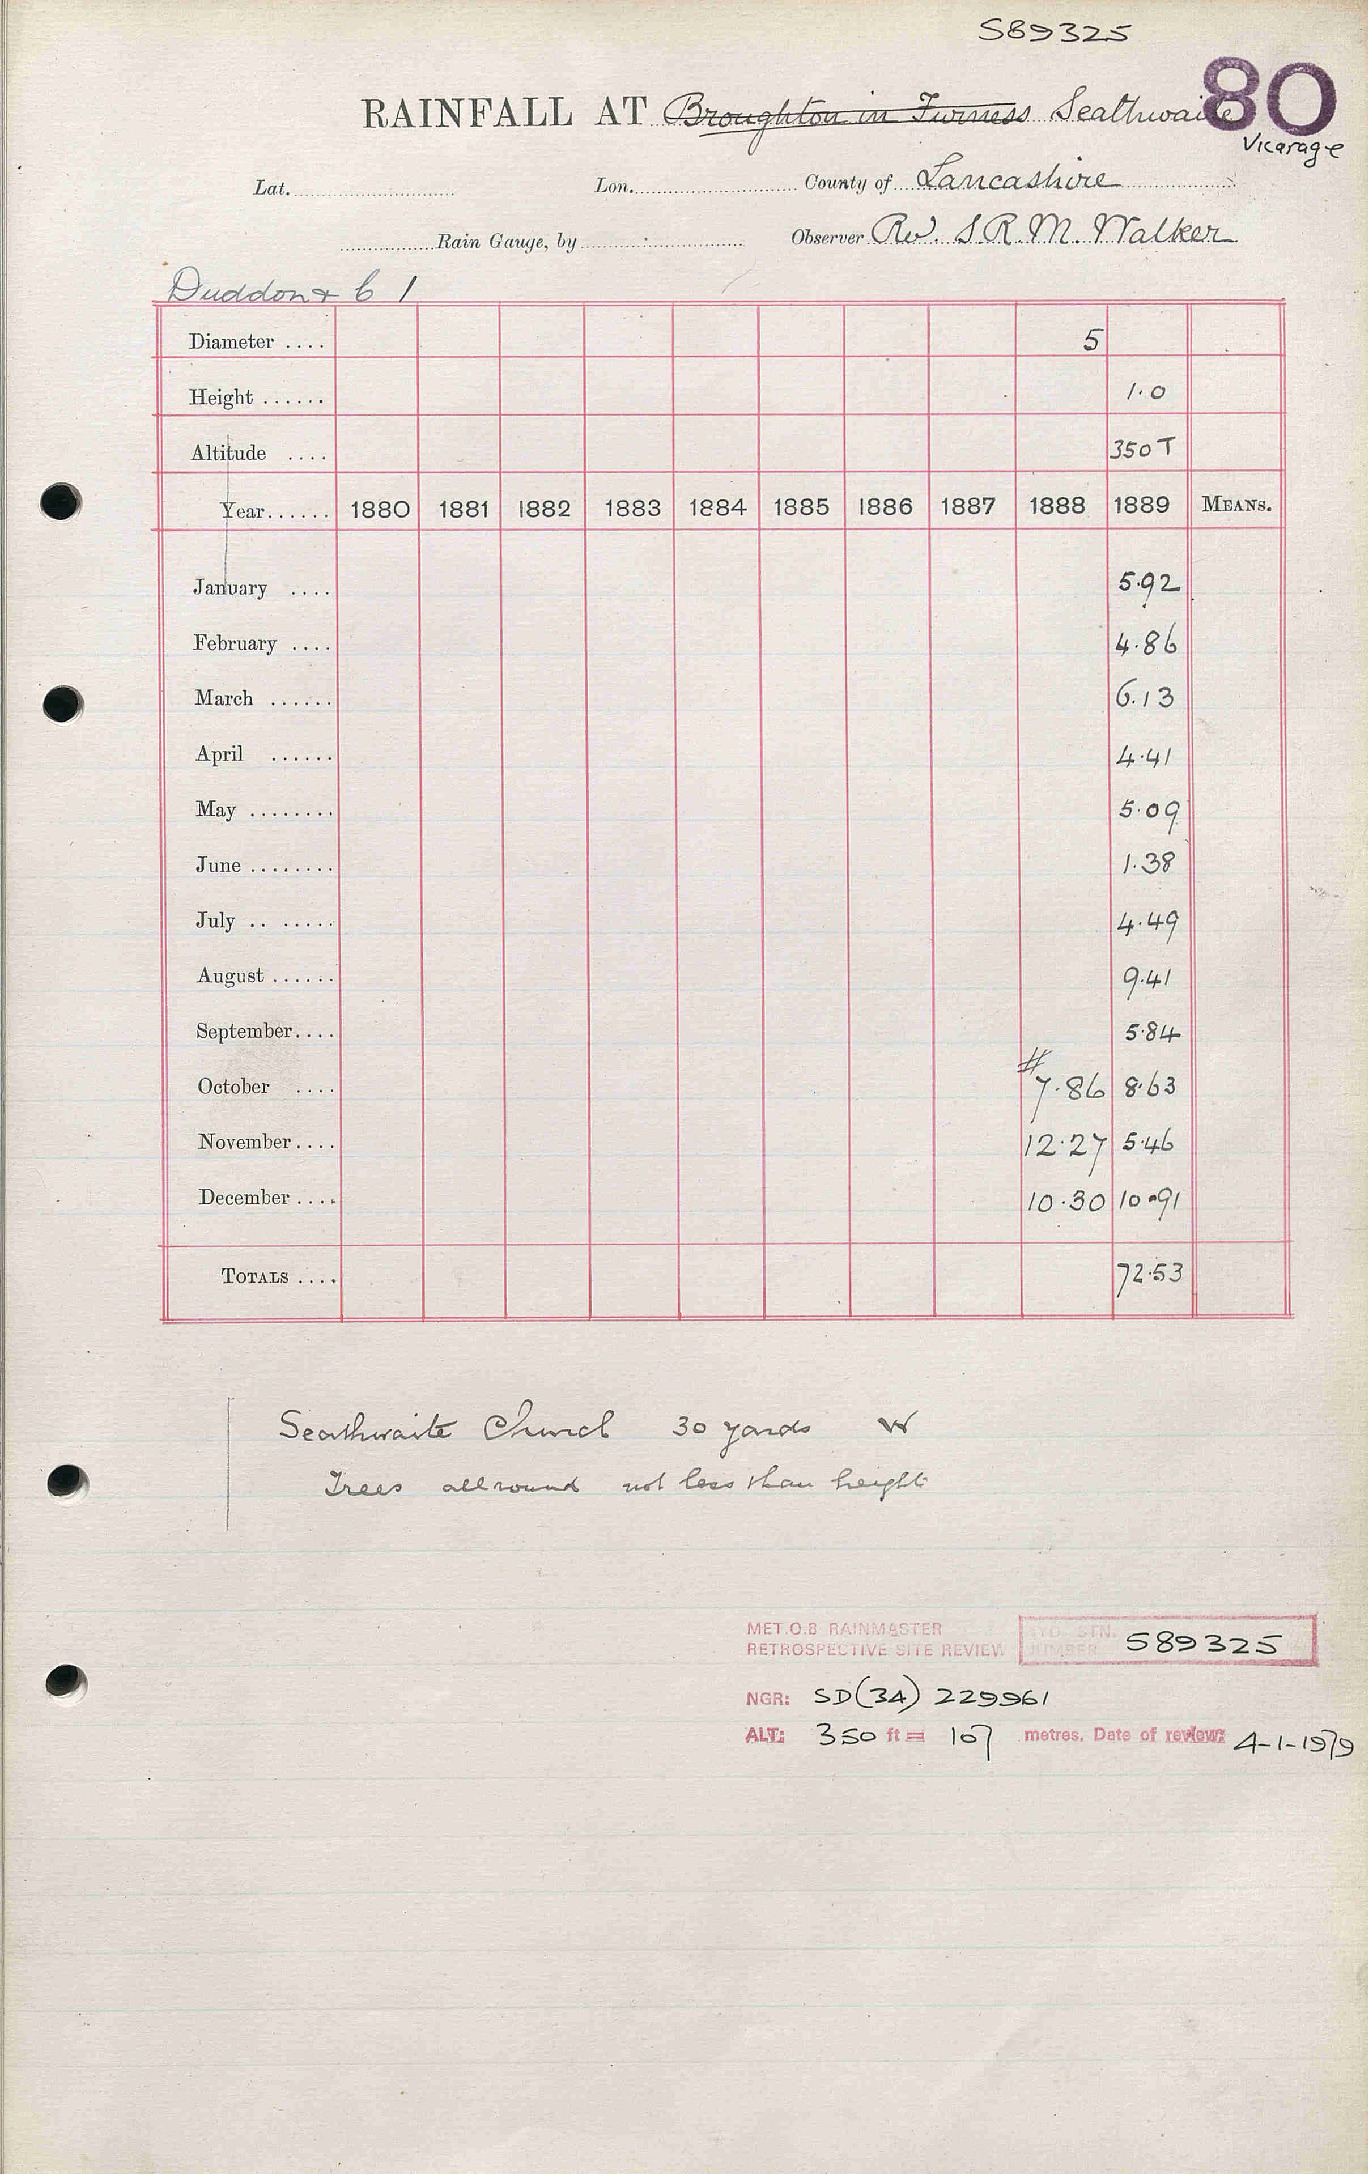 589325
80
RAINFALL AT Broughton in Furness Seathwaite
Vicarage
Lat. Lon. County of Lancashire
Rain Gauge, by Observer Rev. S R. M. Walker
Duddon & C 1
Diameter .... 5
Height ...... 1.0
Altitude .... 350 T
Year...... 1880 1881 1882 1883 1884 1885 1886 1887 1888 1889 MEANS.
January .... 5.92
February .... 4.86
March ...... 6.13
April ...... 4.41
May ........ 5.09
June ........ 1.38
July .. ..... 4.49
August ...... 9.41
September.... 5.84
#
October .... 7.86 8.63
November.... 12.27 5.46
December .... 10.30 10.91
TOTALS .... 72.53
Seathwaite Church 30 yards W
Trees all round not less than height
MET.O.8 RAINMASTER
RETROSPECTIVE SITE REVIEW
STN. NUMBER 589325
NGR: SD(34) 229961
ALT: 350 ft = 107 metres. Date of review: 4-1-1979